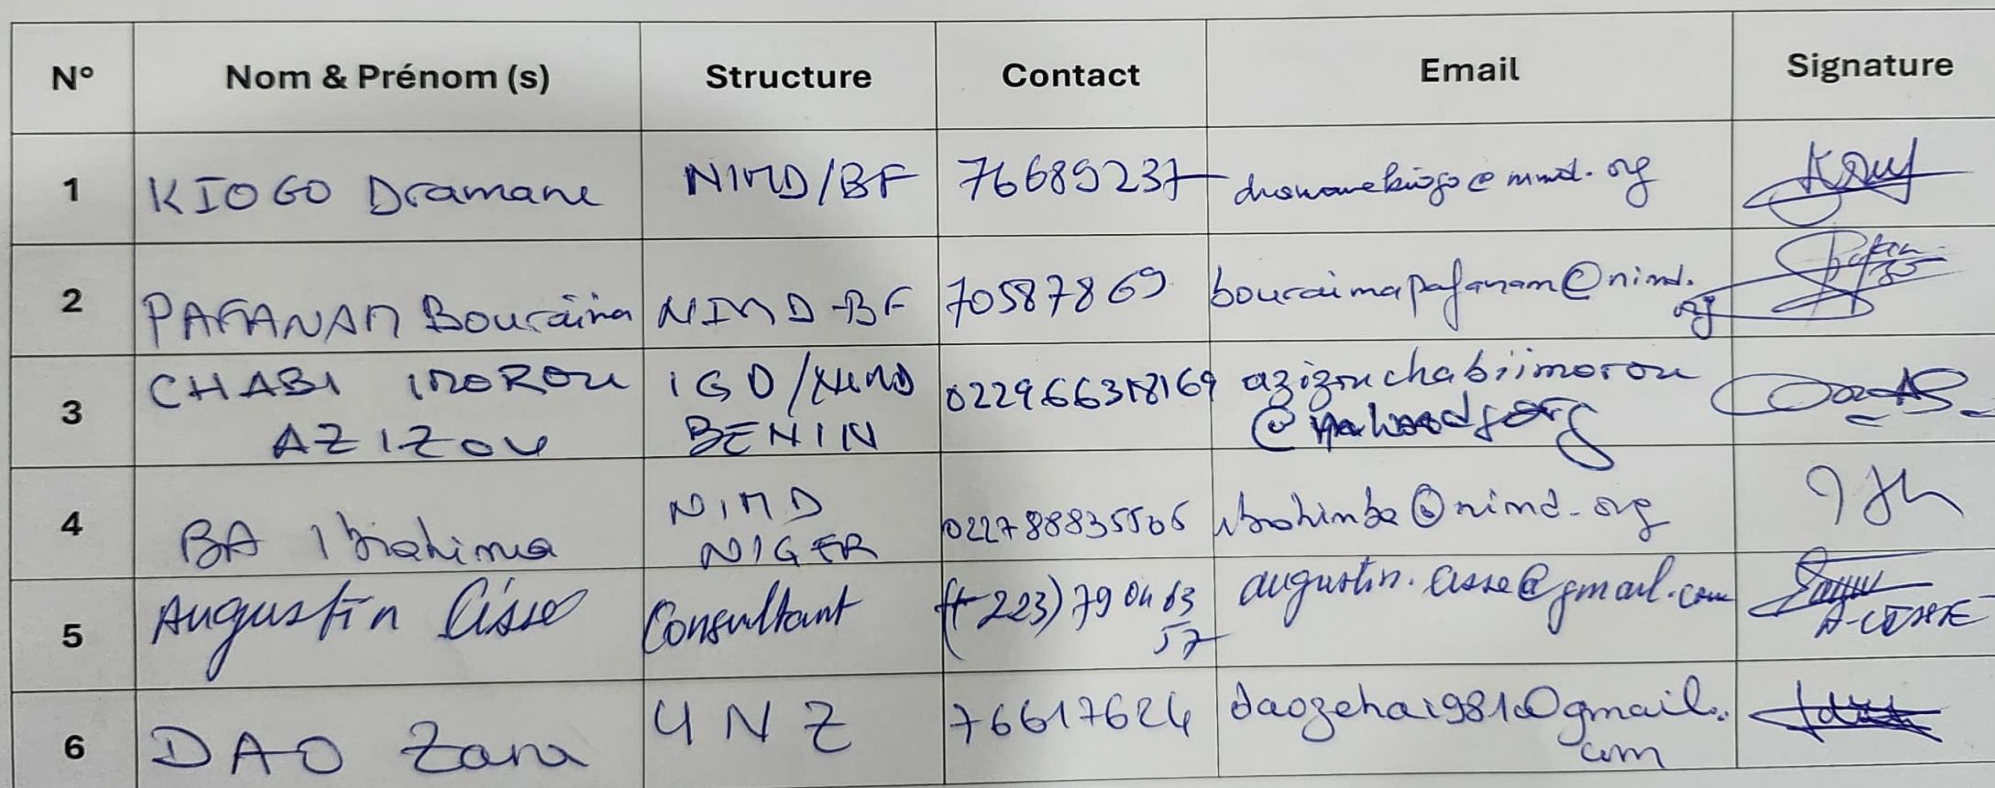 N° Nom & Prénom (s) Structure Contact Email Signature
1 KIOGO Dramane NIMD/BF 76689237 dramanekiogo@nimd.org
2 PAFANAM Bouraïma NIMD-BF 70587869 bouraimapafanam@nimd.
org
3 CHABI IMOROU IGD/NIMD 0229663 azizouchabiimorou
AZIZOU BENIN
4 BA Ibrahima NIMD 022788835506 ibrahimba@nimd.org
NIGER
5 Augustin Cissé Consultant (+223) 79 04 63 augustin.cisse@gmail.com
57 A-CISSE
6 DAO Zara UNZ 76617624 daozeha1981@gmail.
com